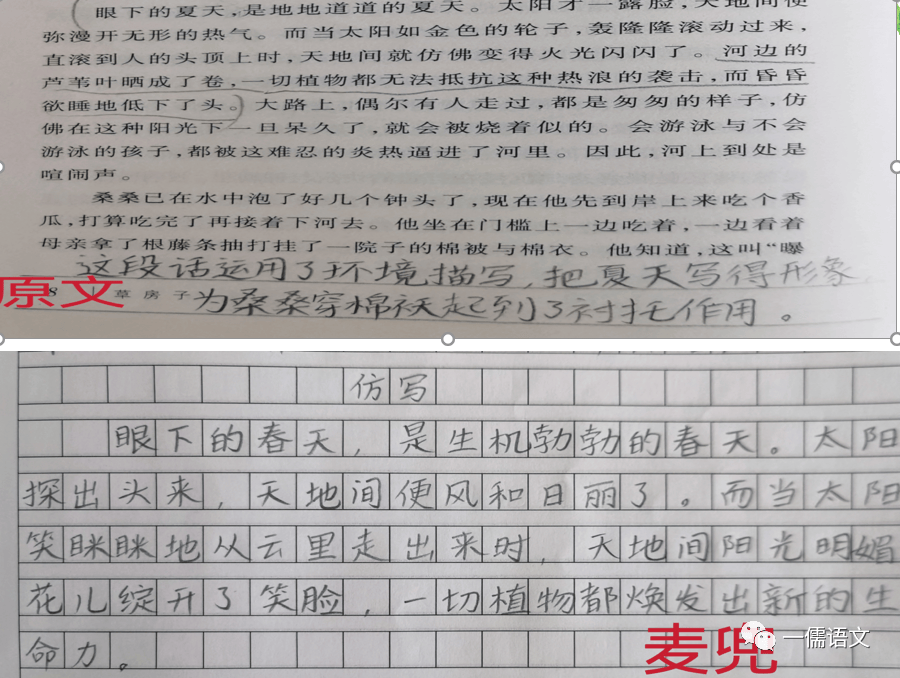 眼下的夏天，是地地道道的夏天。太阳才一露脸，天地间便
弥漫开无形的热气。而当太阳如金色的轮子，轰隆隆滚动过来，
直滚到人的头顶上时，天地间就仿佛变得火光闪闪了。河边的
芦苇叶晒成了卷，一切植物都无法抵抗这种热浪的袭击，而昏昏
欲睡地低下了头。大路上，偶尔有人走过，都是匆匆的样子，仿
佛在这种阳光下一旦呆久了，就会被烧着似的。会游泳与不会
游泳的孩子，都被这难忍的炎热逼进了河里。因此，河上到处是
喧闹声。
桑桑已在水中泡了好几个钟头了，现在他先到岸上来吃个香
瓜，打算吃完了再接着下河去。他坐在门槛上一边吃着，一边看着
母亲拿了根藤条抽打挂了一院子的棉被与棉衣。他知道，这叫“曝
这段话运用了环境描写，把夏天写得形象，
原文
8 草房子
为桑桑穿棉袄起到了衬托作用。
仿写
眼下的春天，是生机勃勃的春天。太阳
探出头来，天地间便风和日丽了。而当太阳
笑眯眯地从云里走出来时，天地间阳光明媚
花儿绽开了笑脸，一切植物都焕发出新的生
命力。
麦兜
一儒语文